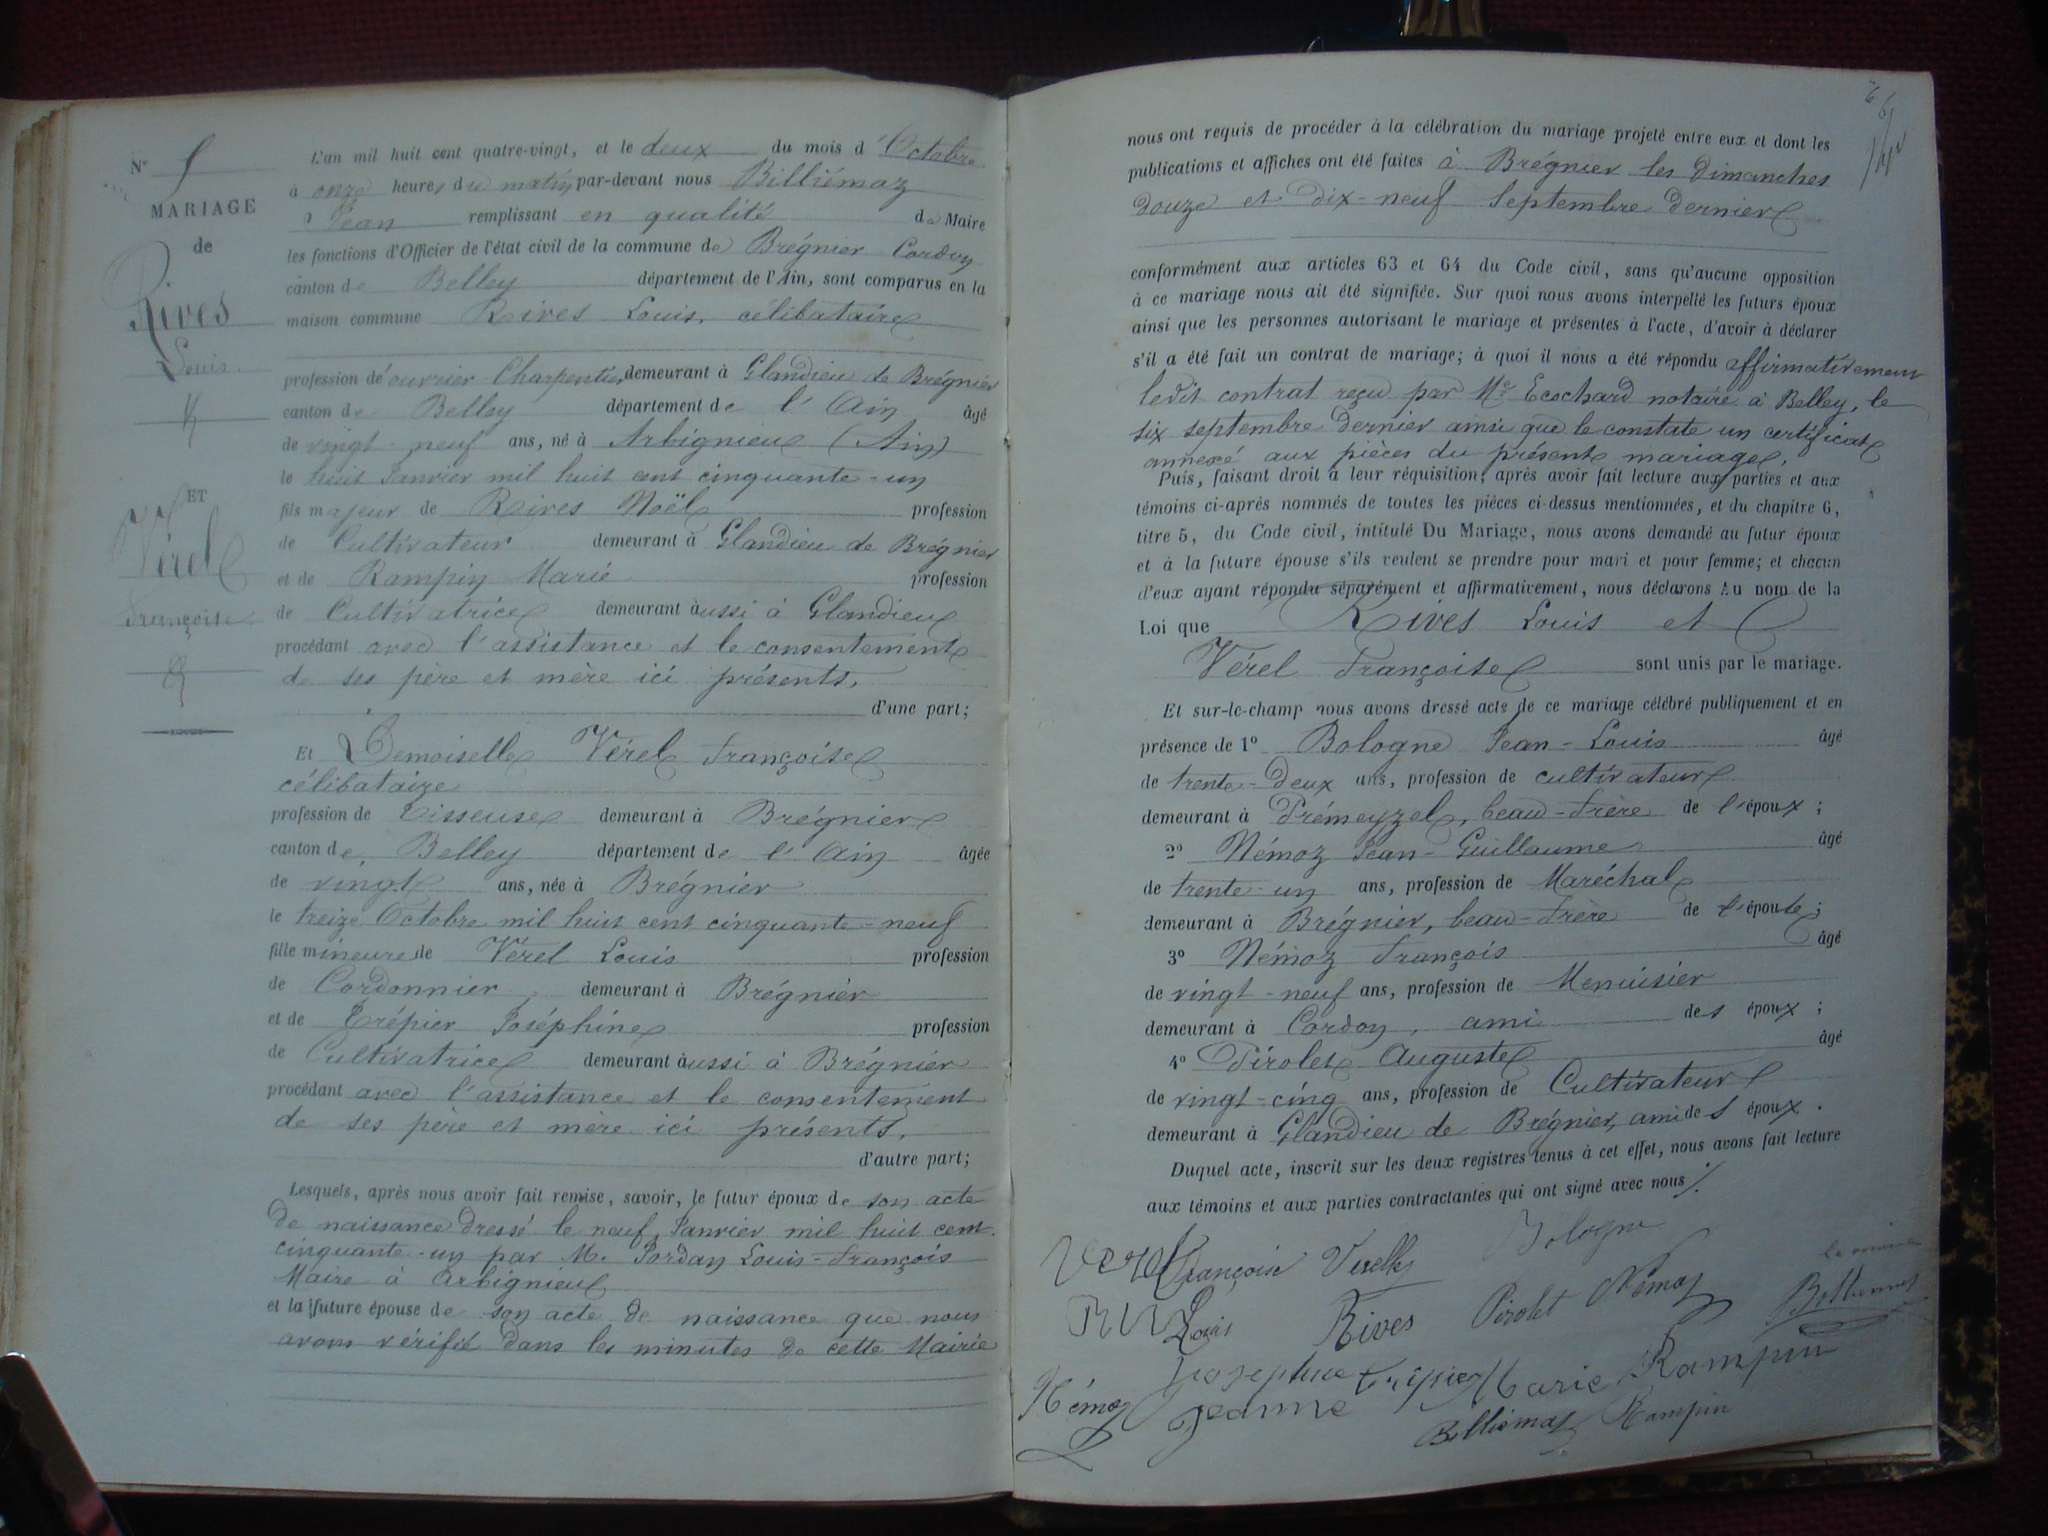 N°
MARIAGE
de
Rives
Louis
ET
Vérel
Françoise
L'an mil huit cent quatre-vingt, et le deux du mois d'Octobre
à onze heures du matin par-devant nous Billiémaz
Jean remplissant en qualité de Maire
les fonctions d'Officier de l'état civil de la commune de Brégnier Cordon
canton de Belley département de l'Ain, sont comparus en la
maison commune Rives Louis, célibataire
profession d'ouvrier Charpentier demeurant à Glandieu de Brégnier
canton de Belley département de l'Ain âgé
de vingt-neuf ans, né à Arbignieu (Ain)
le huit Janvier mil huit cent cinquante-un
fils majeur de Rives Noël profession
de Cultivateur demeurant à Glandieu de Brégnier
et de Rampin Marie profession
de Cultivatrice demeurant aussi à Glandieu
procédant avec l'assistance et le consentement
de ses père et mère ici présents,
d'une part;
Et Demoiselle Vérel Françoise
célibataire
profession de Tisseuse demeurant à Brégnier
canton de Belley département de l'Ain âgée
de vingt ans, née à Brégnier
le treize Octobre mil huit cent cinquante-neuf
fille mineure de Vérel Louis profession
de Cordonnier demeurant à Brégnier
et de Trépier Joséphine profession
de Cultivatrice demeurant aussi à Brégnier
procédant avec l'assistance et le consentement
de ses père et mère ici présents.
d'autre part;
Lesquels, après nous avoir fait remise, savoir, le futur époux de son acte
de naissance dressé le neuf Janvier mil huit cent
cinquante-un par M. Jordan Louis-François
Maire à Arbignieu
et la future épouse de son acte de naissance que nous
avons vérifié dans les minutes de cette Mairie
nous ont requis de procéder à la célébration du mariage projeté entre eux et dont les
publications et affiches ont été faites à Brégnier les dimanches
douze et dix-neuf Septembre dernier
conformément aux articles 63 et 64 du Code civil, sans qu'aucune opposition
à ce mariage nous ait été signifiée. Sur quoi nous avons interpellé les futurs époux
ainsi que les personnes autorisant le mariage et présentes à l'acte, d'avoir à déclarer
s'il a été fait un contrat de mariage; à quoi il nous a été répondu affirmativement
ledit contrat reçu par Me Ecochard notaire à Belley, le
six septembre dernier ainsi que le constate un certificat
annexé aux pièces du présent mariage.
Puis, faisant droit à leur réquisition, après avoir fait lecture aux parties et aux
témoins ci-après nommés de toutes les pièces ci-dessus mentionnées, et du chapitre 6,
titre 5, du Code civil, intitulé Du Mariage, nous avons demandé au futur époux
et à la future épouse s'ils veulent se prendre pour mari et pour femme; et chacun
d'eux ayant répondu séparément et affirmativement, nous déclarons Au nom de la
Loi que Rives Louis et
Vérel Françoise sont unis par le mariage.
Et sur-le-champ nous avons dressé acte de ce mariage célébré publiquement et en
présence de 1° Bologne Jean-Louis âgé
de trente-deux ans, profession de cultivateur
demeurant à Prémeyzel, beau-frère de l'époux;
2° Némoz Jean-Guillaume âgé
de trente-un ans, profession de Maréchal
demeurant à Brégnier, beau-frère de l'épouse;
3° Némoz François âgé
de vingt-neuf ans, profession de Menuisier
demeurant à Cordon, ami des époux;
4° Pirolet Auguste âgé
de vingt-cinq ans, profession de Cultivateur
demeurant à Glandieu de Brégnier, ami des époux.
Duquel acte, inscrit sur les deux registres tenus à cet effet, nous avons fait lecture
aux témoins et aux parties contractantes qui ont signé avec nous
Verel Françoise Verelle Bologne
le maire
Louis Rives Pirolet Némoz Billiemaz
Josephine trepier Marie Rampin
Némoz Jeanne Billiemaz Rampin